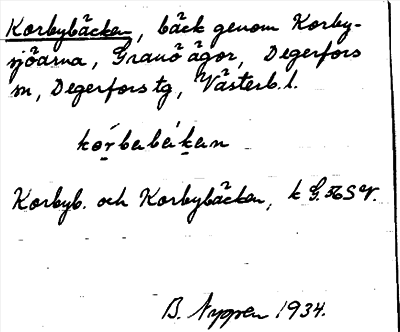 Korbybäcken, bäck genom Korby-
sjöarna, Granö ägor, Degerfors
sn, Degerfors tg, Västerb. l.
kórbabäkan
Korbyb. och Korbybäcken, k G. 56 SV.
B. Nygren 1934.